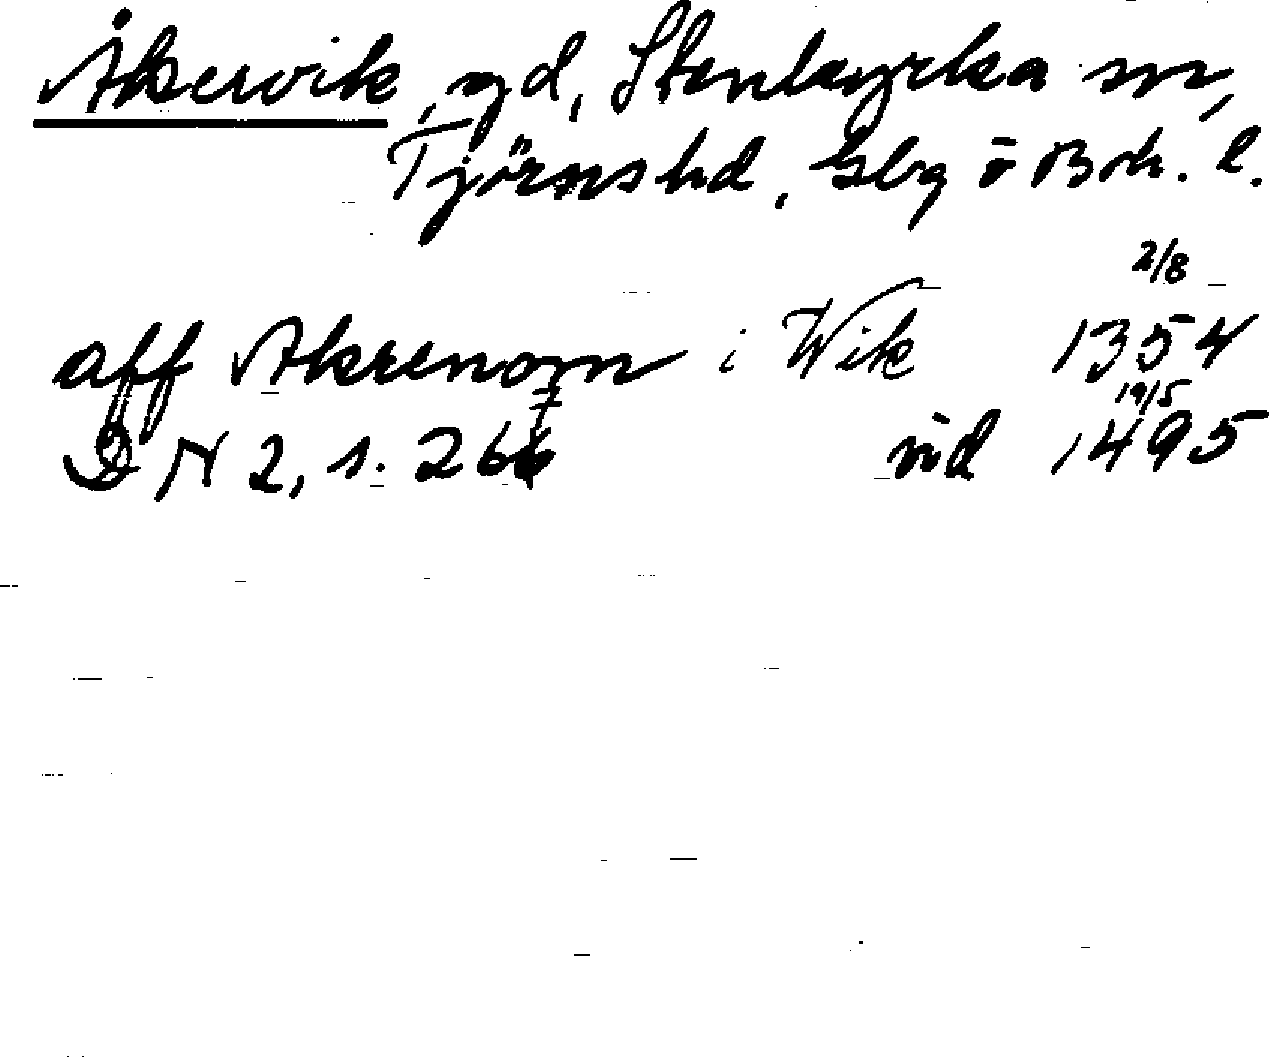 Åkervik, gd, Stenkyrka sn,
Tjörns hd, Gbg o Boh. l.
2/8
aff Akrenom i Wik 1354
19/5
D N 2, s. 267 vid 1495